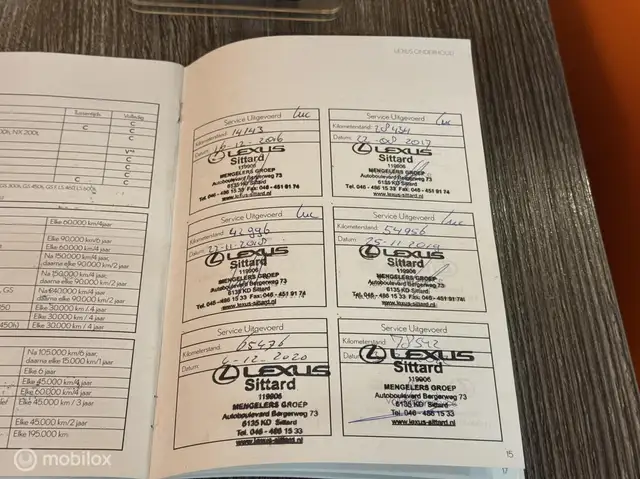 LEXUS ONDERHOUD
Tussentijds
Volledig
C
C
C
C
C
C
C
Elke 60.000 km/4 jaar
Elke 90.000 km/6 jaar
Elke 60.000 km/4 jaar
Na 150.000 km/4 jaar
daarna elke 90.000 km/2 jaar
Na 150.000 km/4 jaar
daarna elke 90.000 km/2 jaar
Elke 30.000 km / 4 jaar
Elke 30.000 km / 4 jaar
Elke 30.000 km / 4 jaar
Na 105.000 km/6 jaar,
daarna elke 15.000 km/1 jaar
Elke 6 jaar
Elke 45.000 km/4 jaar
Elke 60.000 km/4 jaar
Elke 45.000 km / 3 jaar
Elke 45.000 km/2 jaar
Elke 195.000 km
Service Uitgevoerd
Kilometerstand: 14143
Datum: 16-12-2016
LEXUS
Sittard
119906
MENGELERS GROEP
Autoboulevard Bergerweg 73
6135 KD Sittard
Tel. 046 - 486 15 33 Fax: 046 - 451 91 74
Service Uitgevoerd
Kilometerstand: 28434
Datum: 22-08 2017
LEXUS
Sittard
119906
MENGELERS GROEP
Autoboulevard Bergerweg 73
6135 KD Sittard
Tel. 046 - 486 15 33 Fax: 046 - 451 91 74
Service Uitgevoerd
Kilometerstand: 42996
Datum: 22-11-2018
LEXUS
Sittard
119906
MENGELERS GROEP
Autoboulevard Bergerweg 73
6135 KD Sittard
Tel. 046 - 486 15 33 Fax: 046 - 451 91 74
www.lexus-sittard.nl
Service Uitgevoerd
Kilometerstand: 54956
Datum: 25-11 2019
LEXUS
Sittard
119906
MENGELERS GROEP
Autoboulevard Bergerweg 73
6135 KD Sittard
Tel. 046 - 486 15 33 Fax: 046 - 451 91 74
www.lexus-sittard.nl
Service Uitgevoerd
Kilometerstand: 65476
Datum: 4-12-2020
LEXUS
Sittard
119906
MENGELERS GROEP
Autoboulevard Bergerweg 73
6135 KD Sittard
Tel. 046 - 486 15 33
www.lexus-sittard.nl
Service Uitgevoerd
Kilometerstand: 78542
LEXUS
Sittard
119906
MENGELERS GROEP
Autoboulevard Bergerweg 73
6135 KD Sittard
Tel. 046 - 486 15 33
www.lexus-sittard.nl
15
17
mobilox